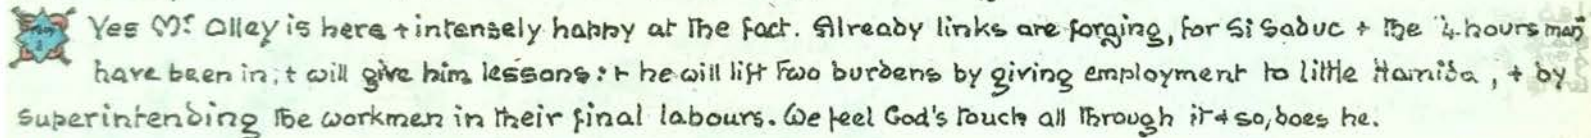 Yes Mr. Olley is here + intensely happy at the fact. Already links are forging, for Si Saduc + the "4 hours man"
have been in; + will give him lessons: + he will lift two burdens by giving employment to little Hamida, + by
superintending the workmen in their final labours. We feel God's touch all through it + so, does he.